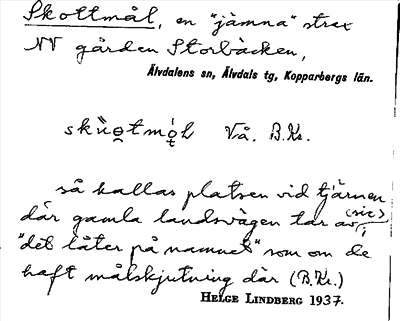 Skottmål, en "jämna" strax
NV gården Storbäcken,
Älvdalens sn, Älvdals tg, Kopparbergs län.
Vå. B.Kr.
så kallas platsen vid tjärnen
där gamla landsvägen tar av, (sic)
"det låter på namnet" som om de
haft målskjutning där (B.Kr.)
HELGE LINDBERG 1937.